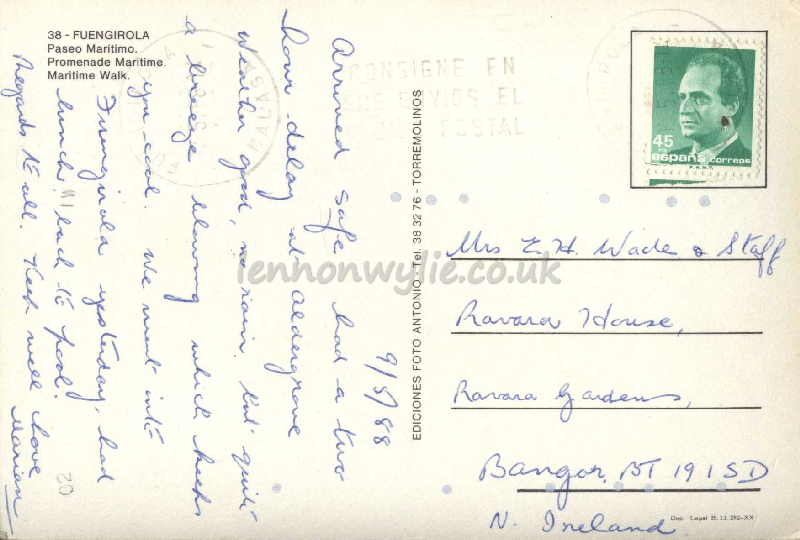 38 - FUENGIROLA
Paseo Marítimo.
Promenade Maritime.
Maritime Walk.
9/5/88
Arrived safe had a two
hour delay at Aldergrove
Weather good, no rain but quite
a breeze blowing which keeps
you cool. We went into
Fuengirola yesterday, had
lunch, back to pool.
Regards to all. Keep well love
Marian
EDICIONES FOTO ANTONIO - Tel. 38 32 76 - TORREMOLINOS
CONSIGNE EN
SUS ENVIOS EL
POSTAL
MALAGA
45
españa correos
F.N.M.T.
Mrs E. H. Wade & Staff
Ravara House,
Ravara Gardens,
Bangor, BT 19 1SD
N. Ireland.
Dep. Legal B. 13.282-XX
lennonwylie.co.uk